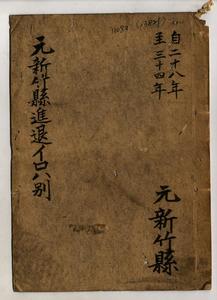 自二十八年
至三十四年
元新竹縣進退イロハ別
元新竹縣